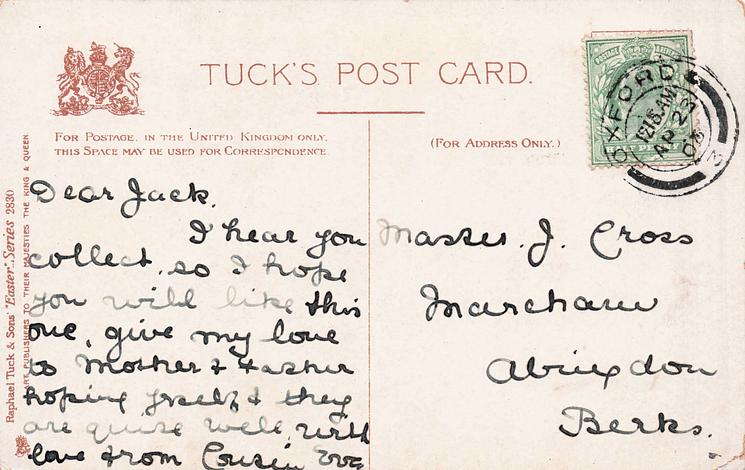 TUCK'S POST CARD.
FOR POSTAGE, IN THE UNITED KINGDOM ONLY,
THIS SPACE MAY BE USED FOR CORRESPONDENCE.
(FOR ADDRESS ONLY.)
Raphael Tuck & Sons' "Easter" Series 2830
ART PUBLISHERS TO THEIR MAJESTIES THE KING & QUEEN.
Dear Jack.
I hear you
collect, so I hope
you will like this
one, give my love
to Mother & Father
hoping yrself & they
are quite well, with
love from Cousin Eva
Master. J. Cross
Marcham
Abingdon
Berks.
POSTAGE
OXFORD
12.15 AM
AP 23
03
3